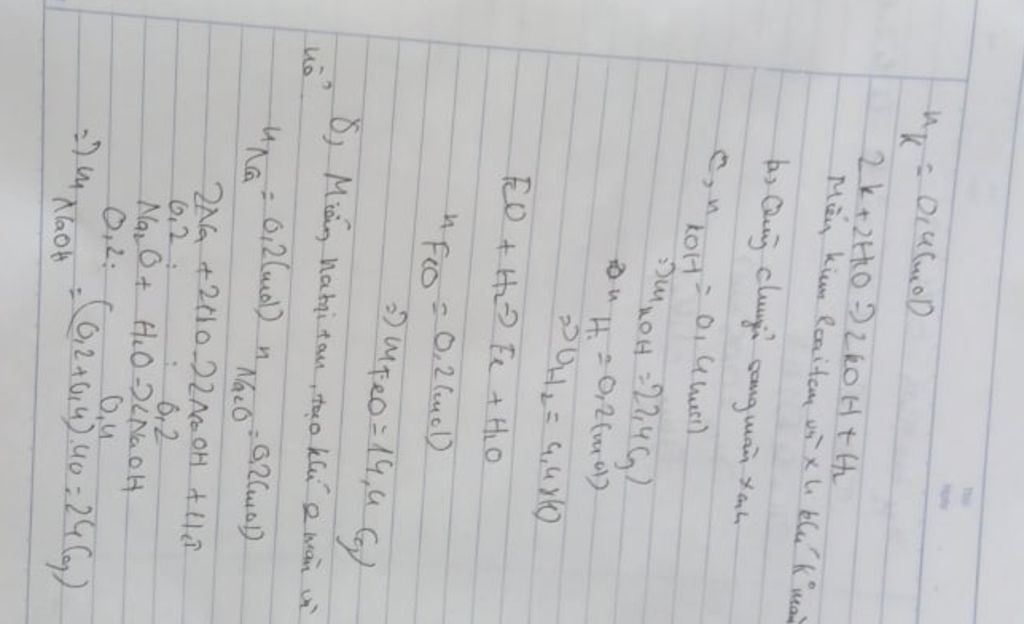 n K = 0,4 (mol)
2K + 2H2O => 2KOH + H2
Miếng kim loại tan và xh khí k° màu
b, Quỳ chuyển sang màu xanh
c, n KOH = 0,4 (mol)
=> m KOH = 22,4 (g)
n H2 = 0,2 (mol)
=> V H2 = 4,48 (l)
FeO + H2 => Fe + H2O
n FeO = 0,2 (mol)
=> m FeO = 14,4 (g)
8, Miếng natri tan, tạo khí k màu và
n Na = 0,2 (mol) n Na2O = 0,2 (mol)
2Na + 2H2O -> 2NaOH + H2↑
0,2 : : 0,2
Na2O + H2O -> 2NaOH
0,2 : 0,4
=> m NaOH = (0,2 + 0,4) . 40 = 24 (g)